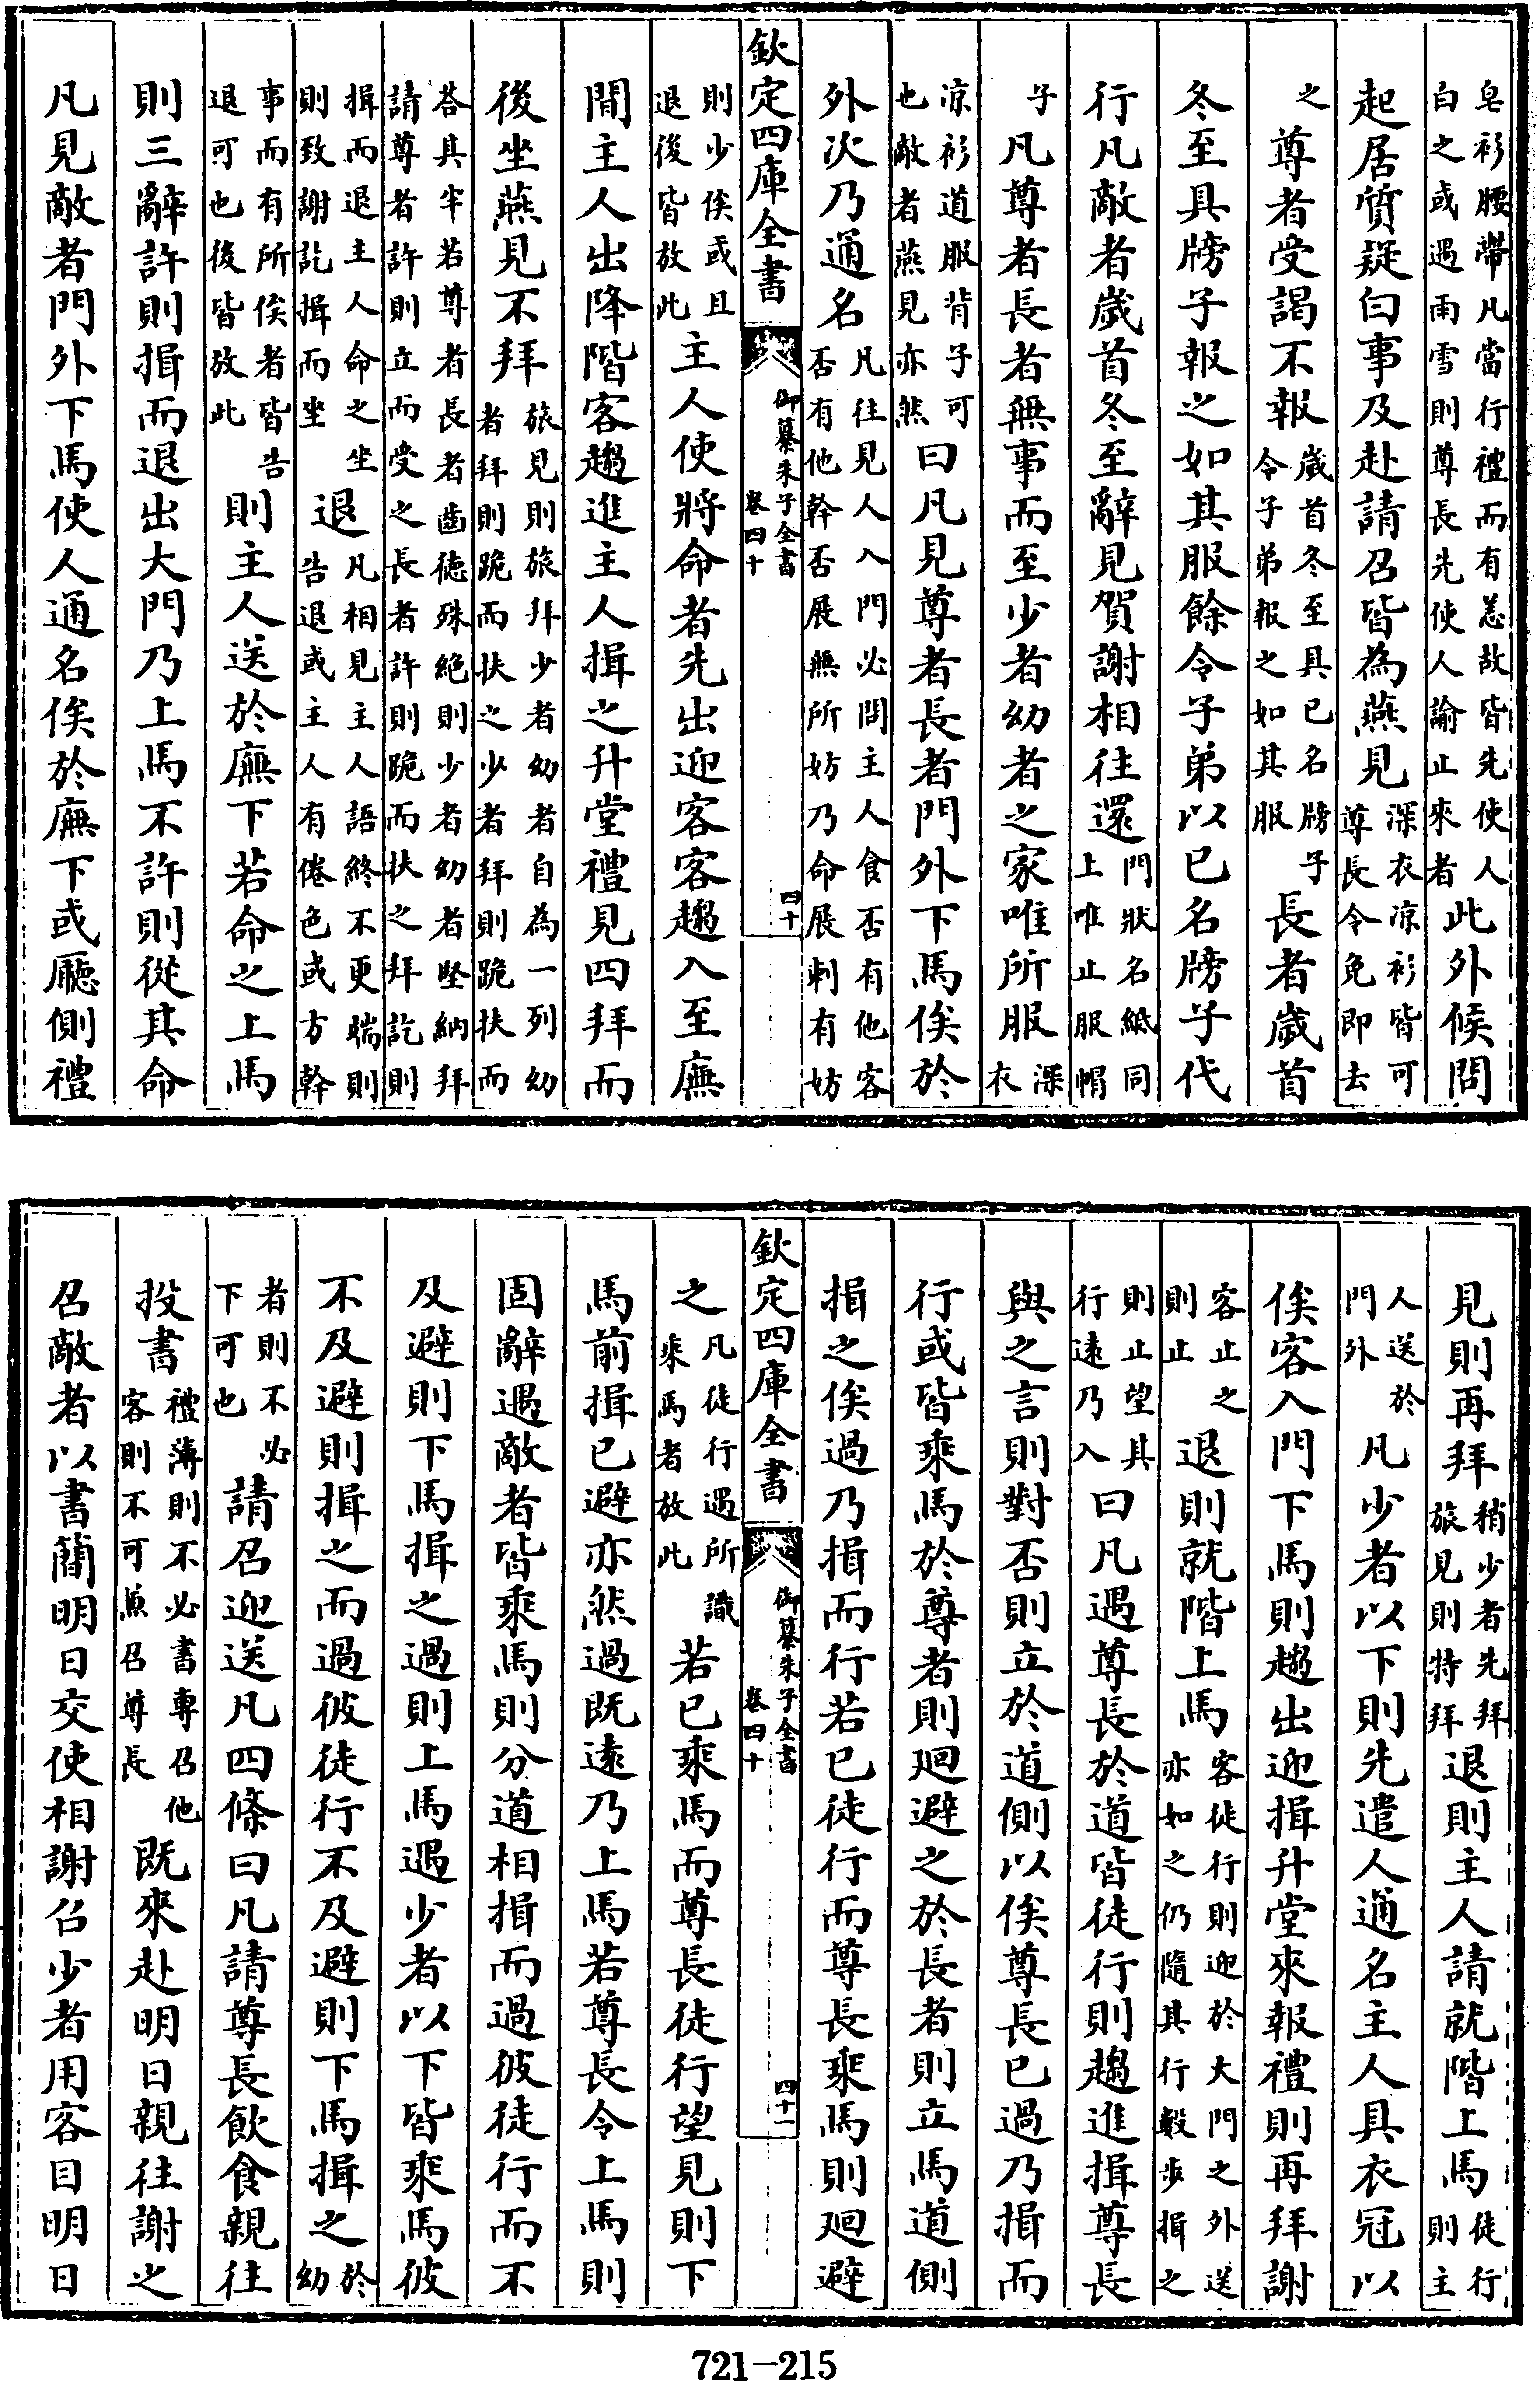 皂衫腰帶凡當行禮而有恙故皆先使人白之或遇雨雪則尊長先使人諭止來者此外候問
起居質疑白事及赴請召皆為燕見深衣凉衫皆可尊長令免即去
之尊者受謁不報歲首冬至具已名牓子令子弟報之如其服長者歲首
冬至具牓子報之如其服餘令子弟以已名牓子代
行凡敵者歲首冬至辭見賀謝相往還門狀名紙同上唯止服帽
子凡尊者長者無事而至少者幼者之家唯所服深衣
凉衫道服背子可也敵者燕見亦然曰凡見尊者長者門外下馬俟於
外次乃通名凡往見人入門必問主人食否有他客否有他幹否展無所妨乃命展刺有妨
欽定四庫全書 御纂朱子全書 卷四十 四十
則少俟或且退後皆放此主人使將命者先出迎客客趨入至廡
間主人出降階客趨進主人揖之升堂禮見四拜而
後坐燕見不拜旅見則旅拜少者幼者自為一列幼者拜則跪而扶之少者拜則跪扶而
荅其半若尊者長者齒徳殊絶則少者幼者堅納拜請尊者許則立而受之長者許則跪而扶之拜訖則
揖而退主人命之坐則致謝訖揖而坐退凡相見主人語終不更端則告退或主人有倦色或方幹
事而有所俟者皆告退可也後皆放此則主人送於廡下若命之上馬
則三辭許則揖而退出大門乃上馬不許則從其命
凡見敵者門外下馬使人通名俟於廡下或廳側禮
見則再拜稍少者先拜旅見則特拜退則主人請就階上馬徒行則主
人送於門外凡少者以下則先遣人通名主人具衣冠以
俟客入門下馬則趨出迎揖升堂來報禮則再拜謝
客止之則止退則就階上馬客徒行則迎於大門之外送亦如之仍隨其行數步揖之
則止望其行遠乃入曰凡遇尊長於道皆徒行則趨進揖尊長
與之言則對否則立於道側以俟尊長已過乃揖而
行或皆乘馬於尊者則廻避之於長者則立馬道側
揖之俟過乃揖而行若已徒行而尊長乘馬則廻避
欽定四庫全書 御纂朱子全書 卷四十 四十一
之凡徒行遇所識乘馬者放此若已乘馬而尊長徒行望見則下
馬前揖已避亦然過既遠乃上馬若尊長令上馬則
固辭遇敵者皆乘馬則分道相揖而過彼徒行而不
及避則下馬揖之過則上馬遇少者以下皆乘馬彼
不及避則揖之而過彼徒行不及避則下馬揖之於幼
者則不必下可也請召迎送凡四條曰凡請尊長飲食親往
投書禮薄則不必書專召他客則不可兼召尊長既來赴明日親往謝之
召敵者以書簡明日交使相謝召少者用客目明日
721-215